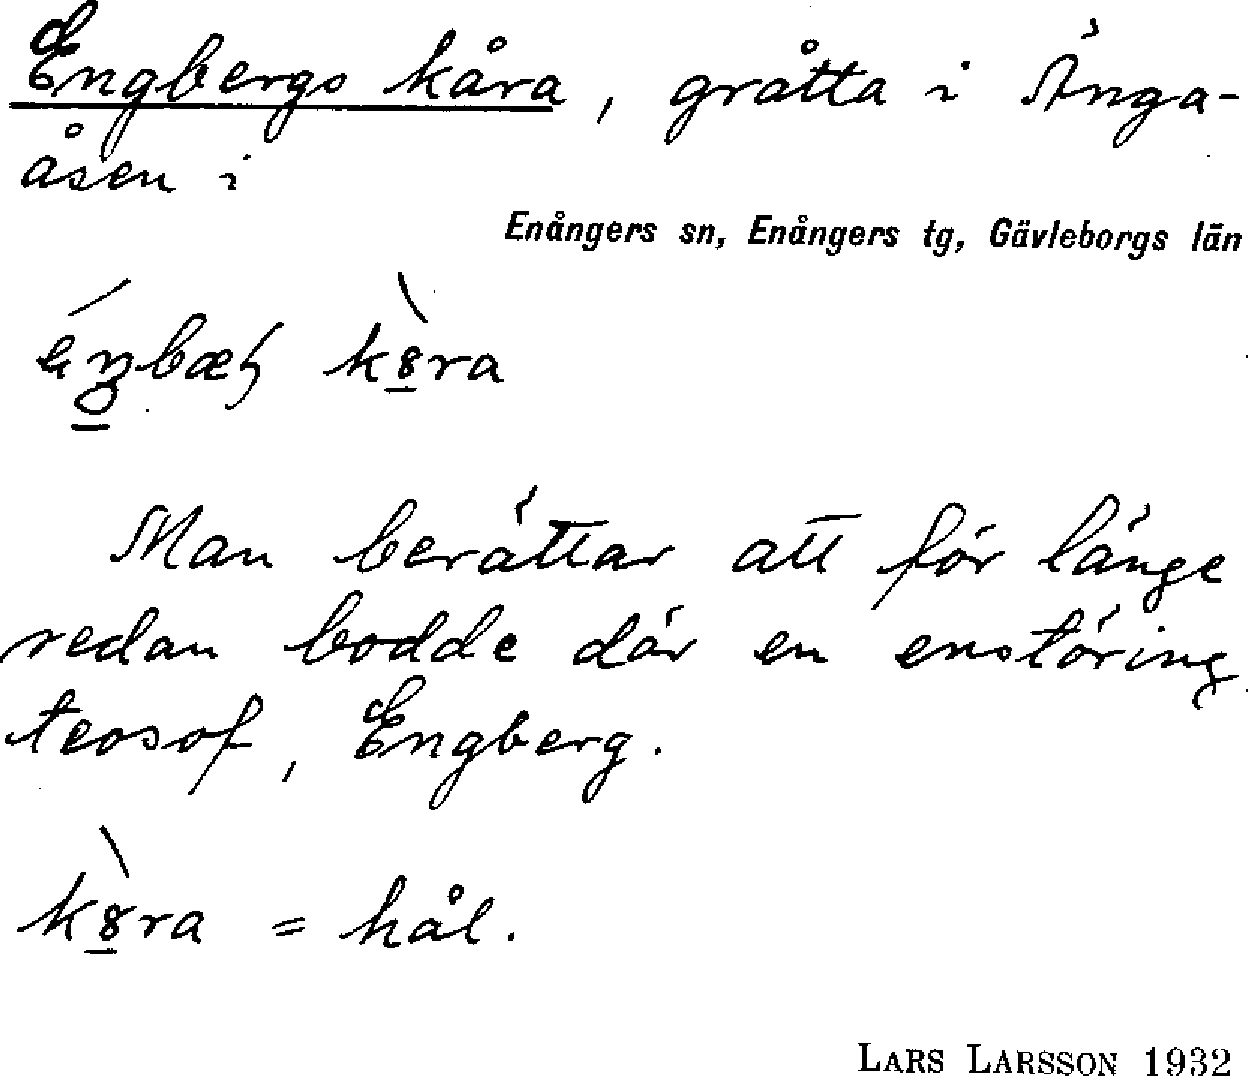 Engbergs kåra, gråtta i Änga-
åsen i
Enångers sn, Enångers tg, Gävleborgs län
kȣ̀ra
Man berättar att för länge
sedan bodde där en enstöring
teosof, Engberg.
kȣ̀ra = hål.
LARS LARSSON 1932